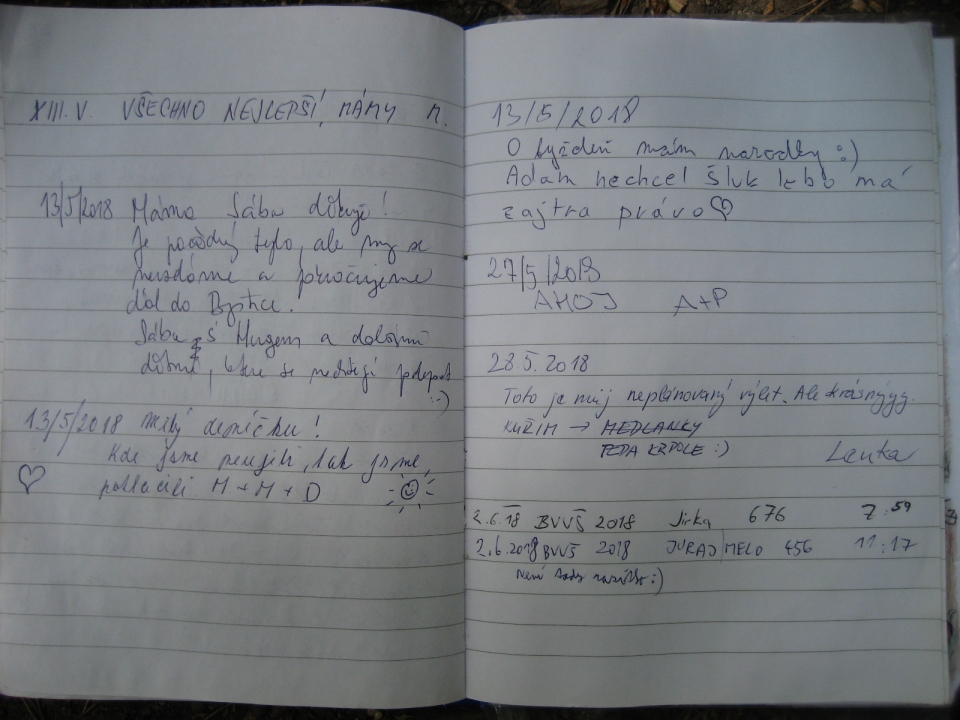 XIII. V. VŠECHNO NEJLEPŠÍ, MÁMY M.
13/5/2018 Máma Sába děkuje!
Je pořádný teplo, ale my se
nevzdáme a pokračujeme
dál do Bystrce.
Sába s Hugem a dalšími
dětmi, které se nechtějí podepsat
:-)
13/5/2018 milý deníčku!
Kde jsme nenašli, tak jsme
potlačili M + M + D
13/5/2018
O týždeň mám narodky :)
Adam nechcel šluk lebo má
zajtra právo
27/5/2018
AHOJ A+P
28.5.2018
Toto je můj neplánovaný výlet. Ale krásnýýý.
KUŘIM → MEDLÁNKY
TEDA KRPOLE :)
Lenka
2.6.18 BVVŠ 2018 Jirka, 676 7:59
2.6.2018 BVVŠ 2018 JURAJ MELO 456 11:17
Není tady razítko :)